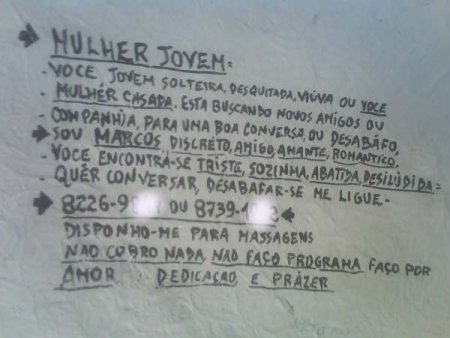 MULHER JOVEM=
- VOCE JOVEM SOLTEIRA, DESQUITADA, VIÚVA OU VOCE
- MULHER CASADA. ESTA BUSCANDO NOVOS AMIGOS OU
- COMPANHIA, PARA UMA BOA CONVERSA, OU DESABÁFO,
SOU MARCOS, DISCRÉTO, AMIGO, AMANTE, ROMANTICO.
- VOCE ENCONTRA-SE TRISTE, SOZINHA, ABATIDA, DESILÚDIDA=
- QUÉR CONVERSAR, DESABAFAR-SE ME LIGUE-
8226-9 OU 8739-1
DISPONHO-ME PARA MASSAGENS
NAO COBRO NADA NAO FAÇO PROGRAMA FAÇO POR
AMOR DEDICAÇAO E PRÁZER